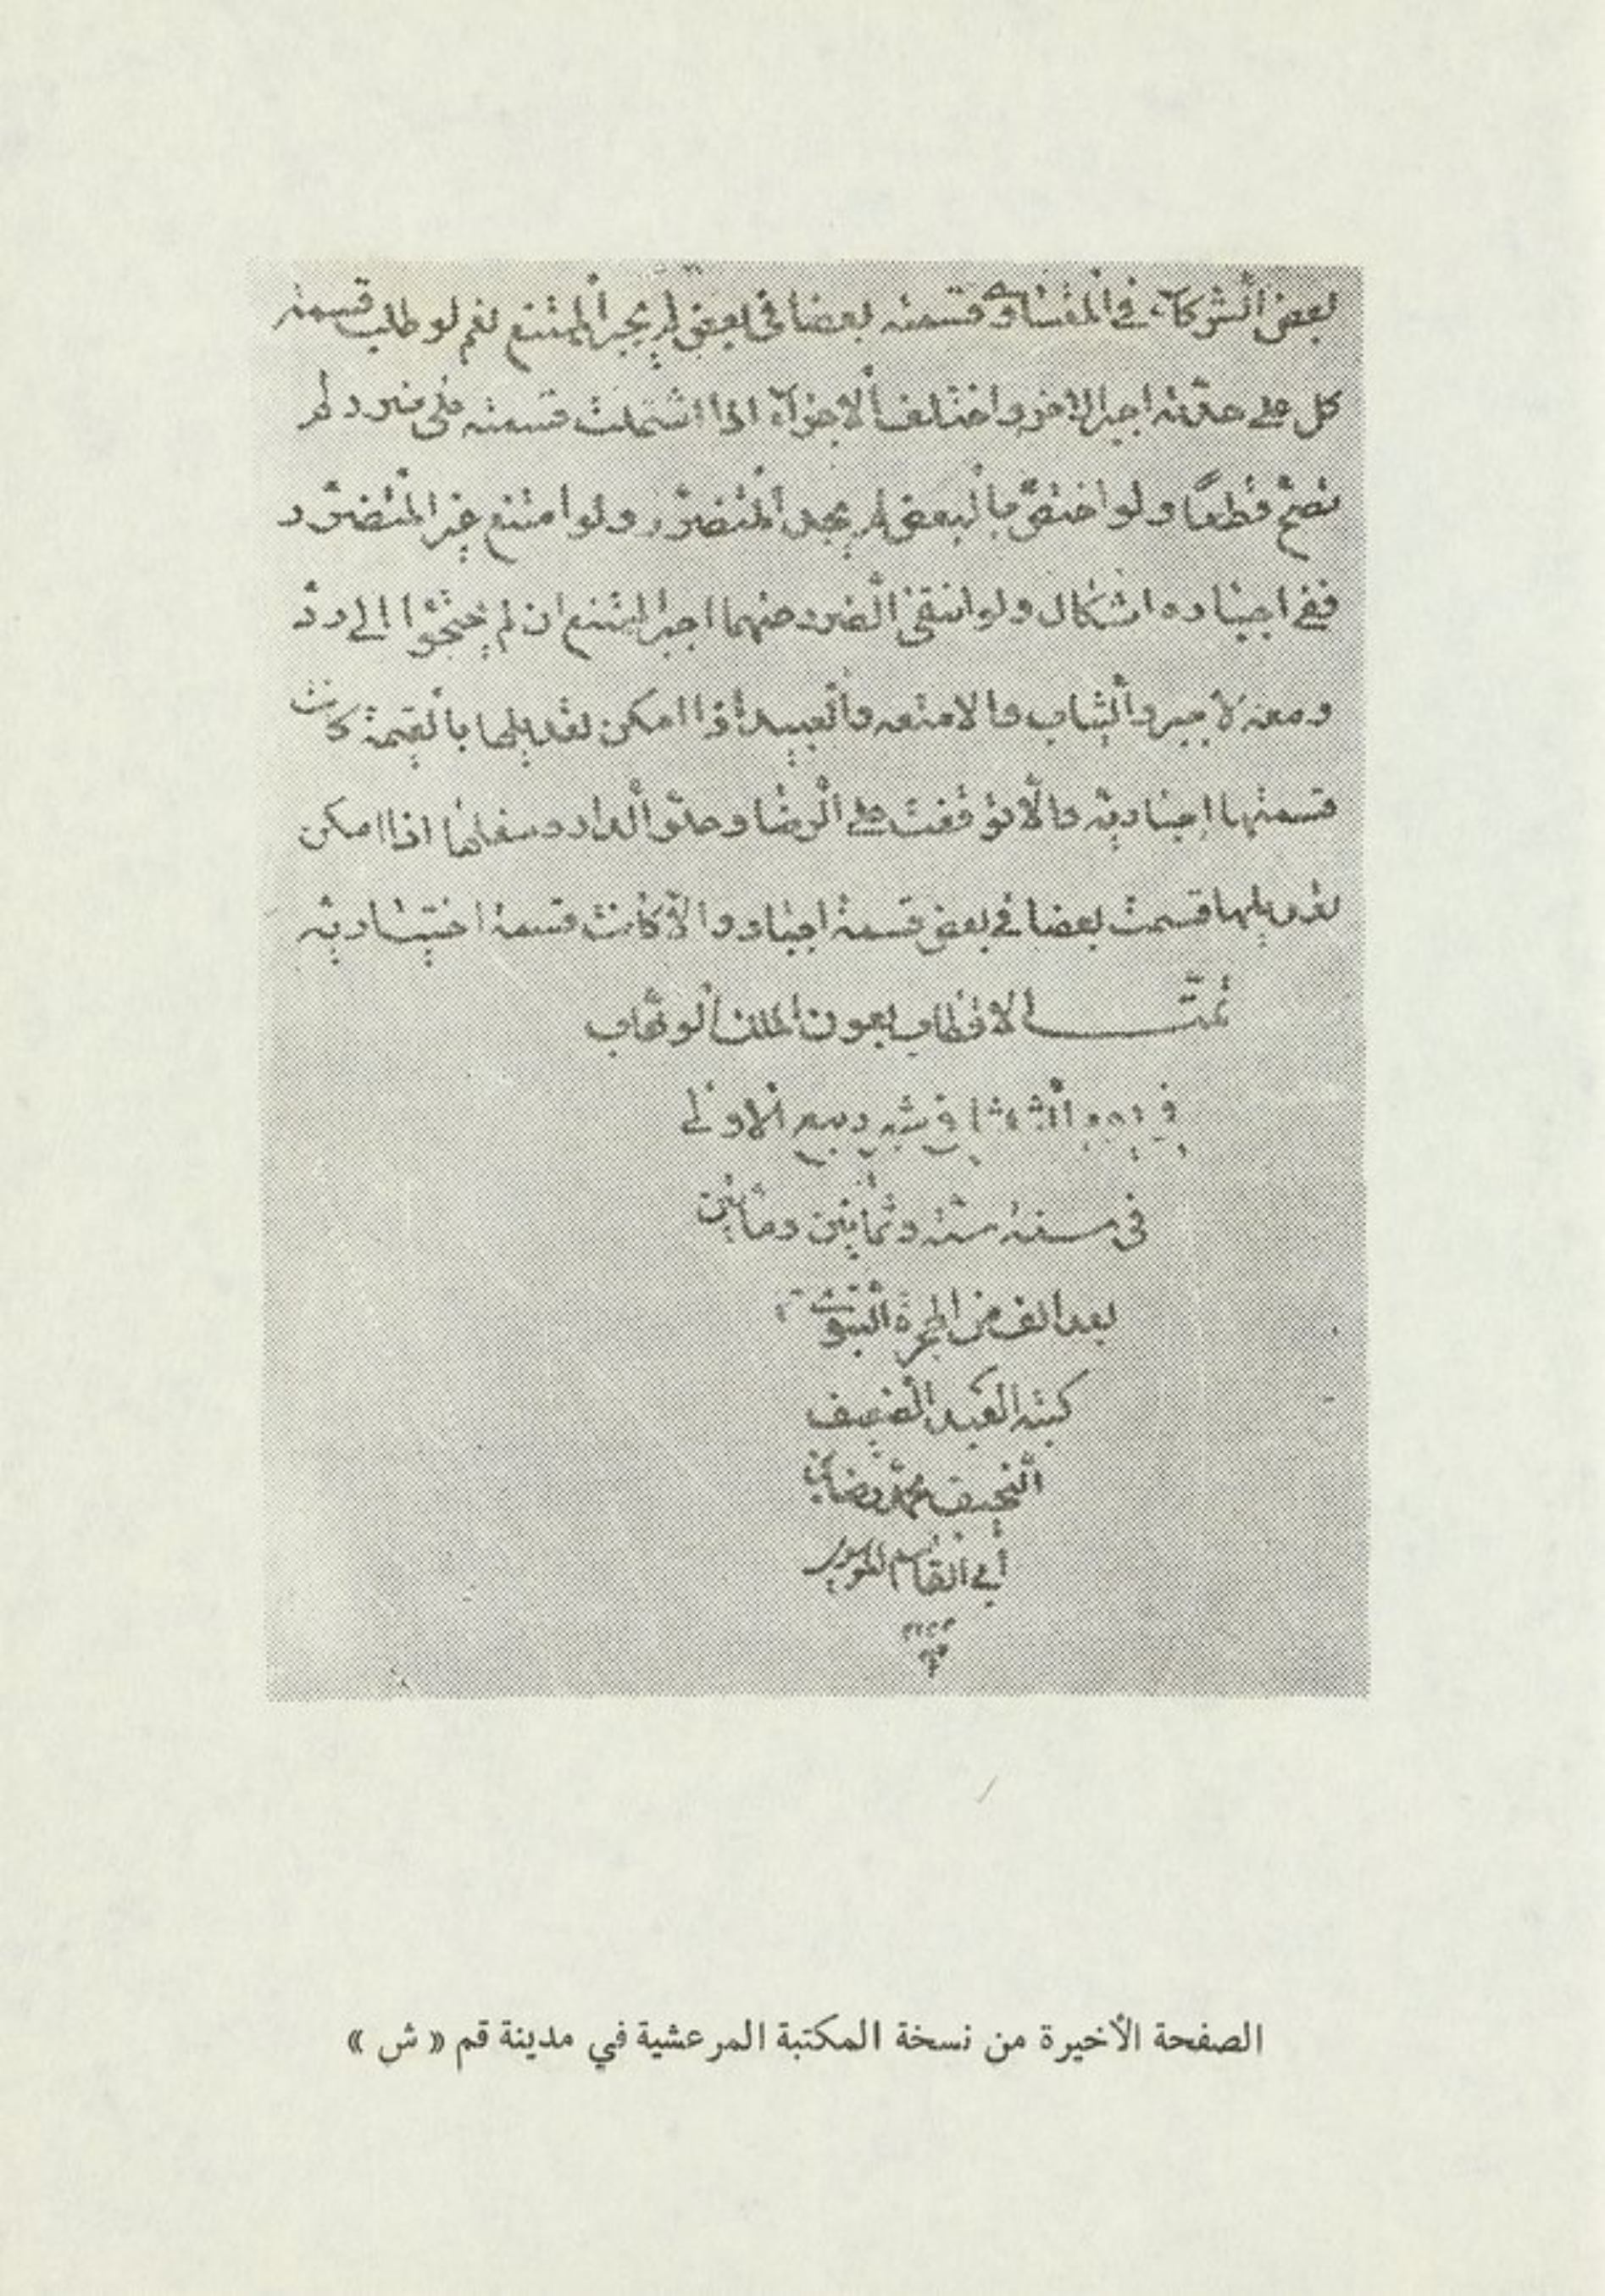 بعض الشركاء في المتساوى قسمته بعضا فى بعض لم يجبر الممتنع نعم لو طلب قسمته
كل على حدته اجبر الاخر و اختلف الاجزاء اذا اشتملت قسمته على ضرر لم
تصح قطعًا و لو اختصّ بالبعض لم يجبر المتضرّر و لو امتنع غير المتضرّر
ففي اجباره اشكال و لو انتفى الضرر عنهما اجبر الممتنع ان لم يحتجوا الى ردّ
و معه لا جبر و الثياب و الامتعه و العبيد اذا امكن تعديلها بالقيمة كانت
قسمتها اجباريّة و الّا توقفت على الرضا و علوّ الدار و سفلها اذا امكن
تعديلها قسمت بعضا في بعض قسمة اجبار و الّا كانت قسمة اختياريّه
تمّت الاقطاب بعون الملك الوهّاب
في يوم الثلثا في شهر ربيع الاولى
فى سنه ستّه و ثمانين و مأتين
بعد الف من الهجرة النبويّ
كتبه العبد الضعيف
النحيف محمّد رضا بن
أبي القاسم الموسوى
الصفحة الأخيرة من نسخة المكتبة المرعشية في مدينة قم « ش »